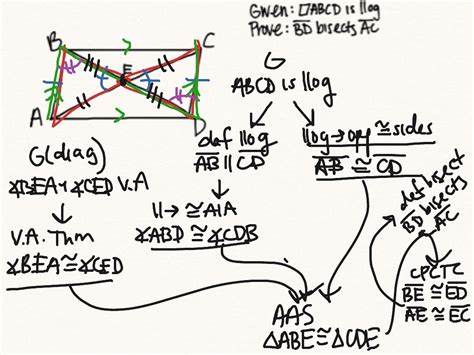 Given: ▱ABCD is llog
Prove: B̅D̅ bisects A̅C̅
B
C
E
A
D
G
ABCD is llog
def llog
A̅B̅ || C̅D̅
llog → opp ≅ sides
A̅B̅ ≅ C̅D̅
G(diag)
∢BEA + ∢CED V.A
V.A. Thm
∢BEA ≅ ∢CED
ll → ≅ AIA
∢ABD ≅ ∢CDB
def bisect
B̅D̅ bisects
A̅C̅
CPCTC
B̅E̅ ≅ E̅D̅
A̅E̅ ≅ E̅C̅
AAS
ΔABE ≅ ΔCDE